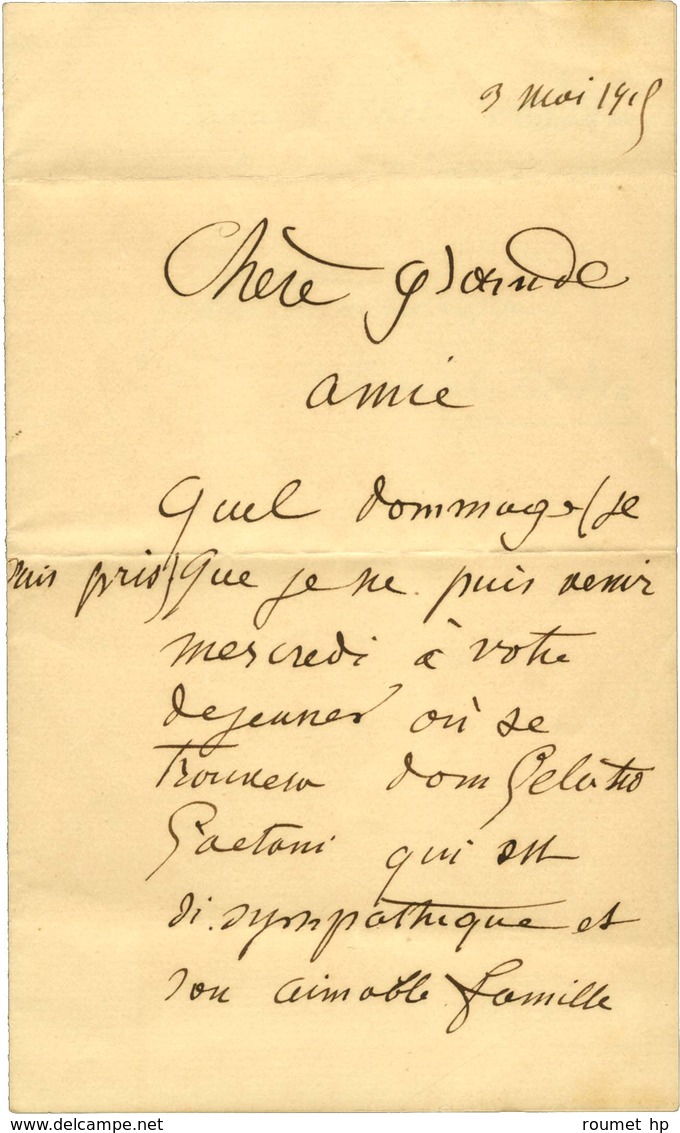 3 mai 1915
Chère grande
amie
Quel dommage (je
suis pris) que je ne puis venir
mercredi à votre
dejeuner où se
trouvera dom Gelasio
Gaetani qui est
si sympathique et
son aimable famille
www.delcampe.net
roumet hp